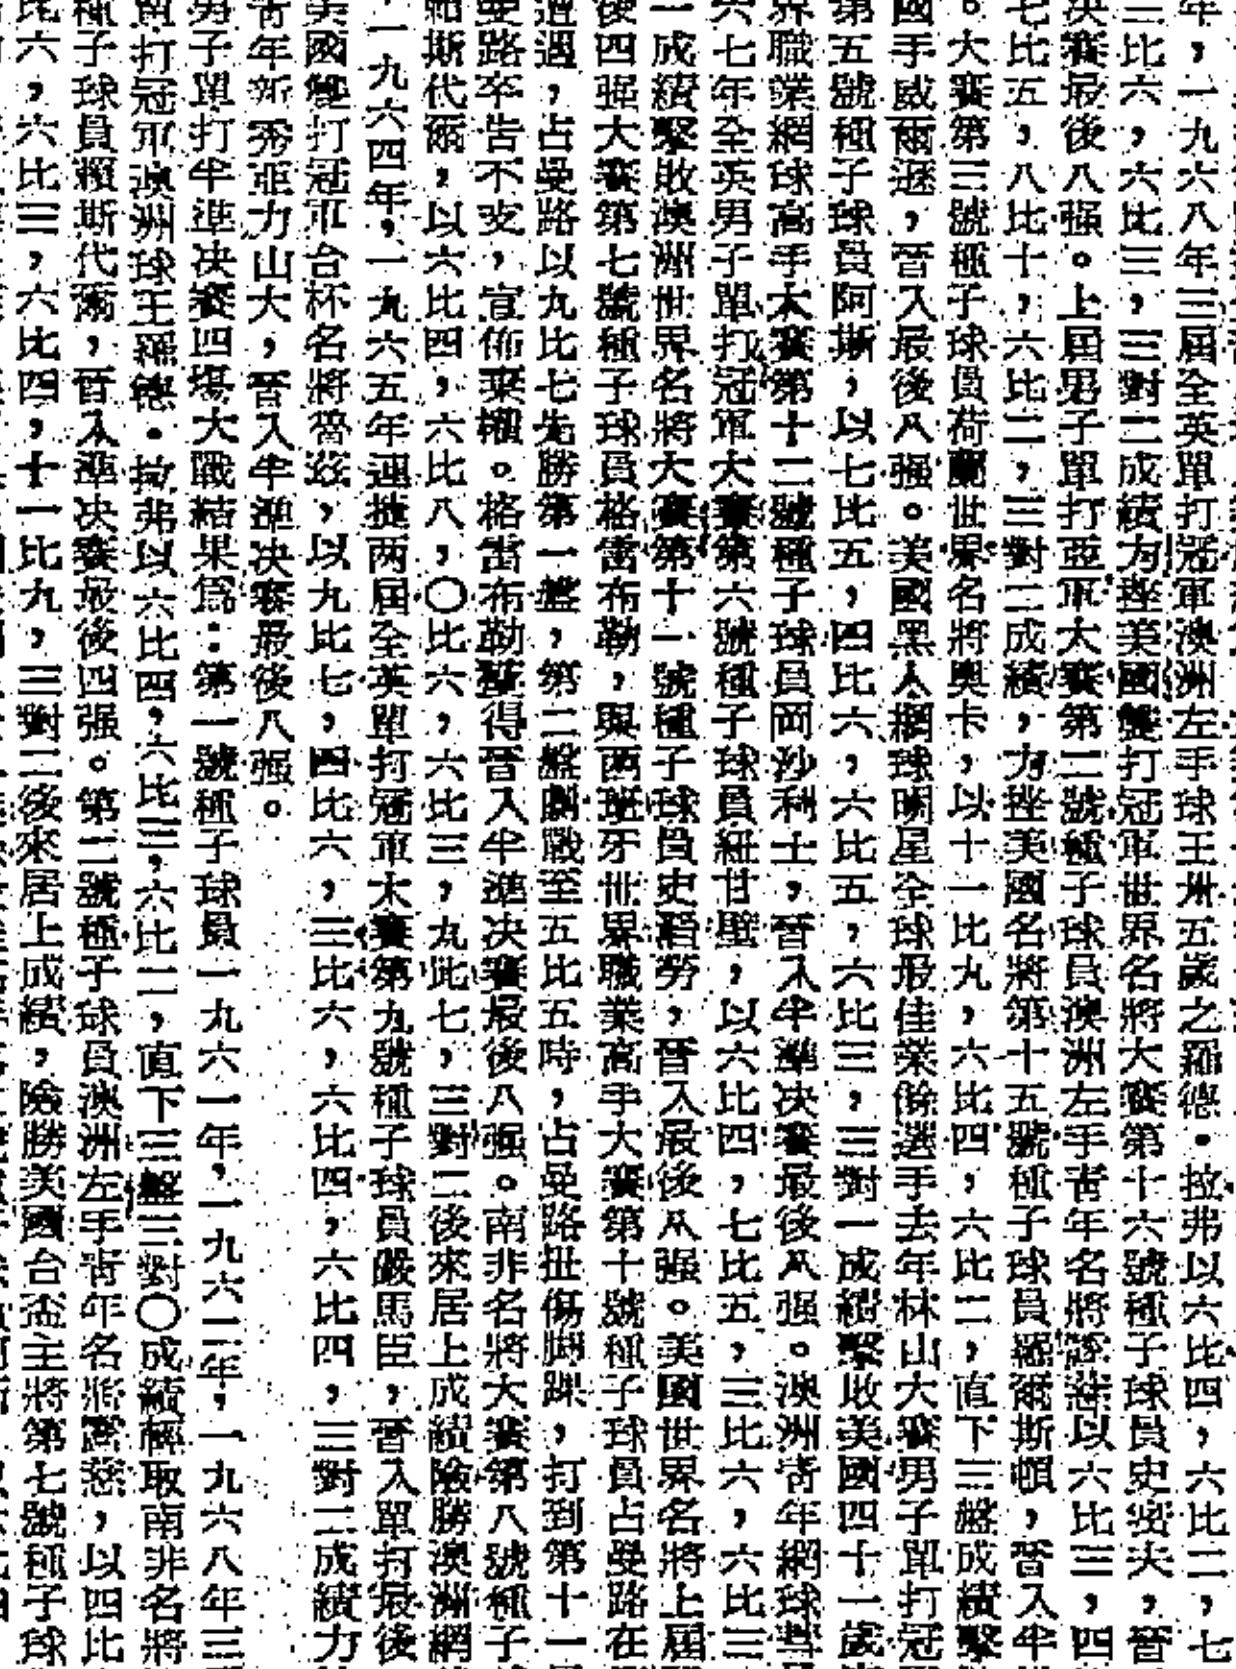 年，一九六八年三屆全英單打冠軍澳洲左手球王卅五歲之羅德·拉弗以六比四，六比二，七
三比六，六比三，三對二成績力挫美國雙打冠軍世界名將大賽第十六號種子球員史密夫，晉
決賽最後八强。上屆男子單打亞軍大賽第二號種子球員澳洲左手青年名將露慈以六比三，四
七比五，八比十，六比二，三對二成績，力挫美國名將第十五號種子球員羅爾斯頓，晉入半
。大賽第三號種子球員荷蘭世界名將奧卡，以十一比九，六比四，六比二，直下三盤成績擊
國手威爾遜，晉入最後八强。美國黑人網球明星全球最佳業餘選手去年林山大賽男子單打冠
第五號種子球員阿斯，以七比五，四比六，六比五，六比三，三對一成績擊敗美國四十一歲
界職業網球高手大賽第十二號種子球員岡沙利士，晉入半準決賽最後八强。澳洲青年網球
六七年全英男子單打冠軍大賽第六號種子球員紐甘壁，以六比四，七比五，三比六，六比三
一成績擊敗澳洲世界名將大賽第十一號種子球員史稻勞，晉入最後八强。美國世界名將上屆
後四强大賽第七號種子球員格雷布勒，與西班牙世界職業高手大賽第十號種子球員占曼路在
遭遇，占曼路以九比七先勝第一盤，第二盤劇戰至五比五時，占曼路扭傷脚踝，打到第十一
曼路卒告不支，宣佈棄權。格雷布勒獲得晉入半準決賽最後八强。南非名將大賽第八號種子
斯代爾，以六比四，六比八，〇比六，六比三，九比七，三對二後來居上成績險勝澳洲網
，一九六四年，一九六五年連捷两屆全英單打冠軍大賽第九號種子球員嚴馬臣，晉入單打最後
美國雙打冠軍台杯名將魯茲，以九比七，四比六，三比六，六比四，六比四，三對二成績力
青年新秀亚力山大，晉入半準決賽最後八强。
男子單打半準決賽四塲大戰結果爲：第一號種子球員一九六一年，一九六二年，一九六八年三
單打冠軍澳洲球王羅德·拉弗以六比四，六比三，六比二，直下三盤三對〇成績輕取南非名將
種子球員賴斯代爾，晉入準決賽最後四强。第二號種子球員澳洲左手青年名將露慈，以四比
比六，六比三，六比四，十一比九，三對二後來居上成績，險勝美國台盃主將第七號種子球